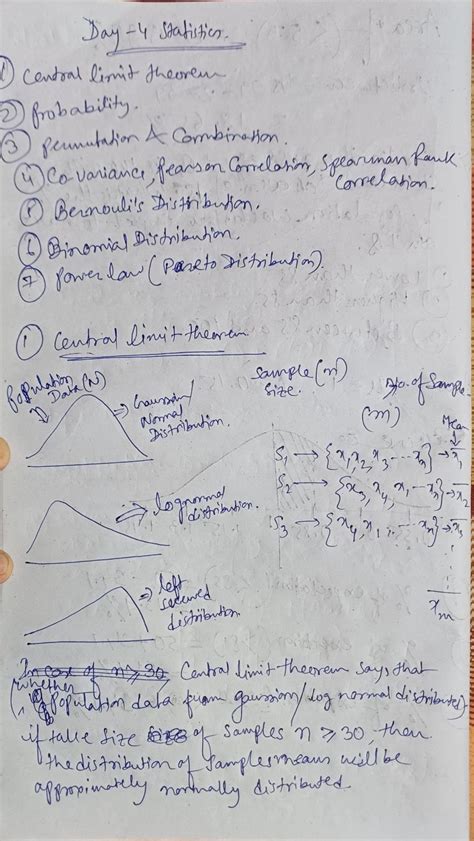 Day-4 Statistics.
① Central limit theorem
② Probability.
③ Permutation & Combination.
④ Co-variance, Pearson Correlation, Spearman Rank
Correlation.
⑤ Bernouli's Distribution.
⑥ Binomial Distribution.
⑦ Power law (Pareto Distribution)
① Central limit theorem
Population
Data (N)
Gaussian/
Normal
Distribution.
Sample (n)
size.
No. of Sample
(m)
Mean
S₁ → {x₁, x₂, x₃ ---- xₙ} → x̄₁
S₂ → {x₃, x₄, x₁ --- xₙ} → x̄₂
S₃ → {x₄, x₁, --- xₙ} → x̄₃
x̄ₘ
lognormal
distribution.
left
distribution
In case of n ≥ 30 Central limit theorem says that
(whether Population data from gaussion/log normal distributed)
if take size of samples n ≥ 30, then
the distribution of Samples means will be
approximately normally distributed.